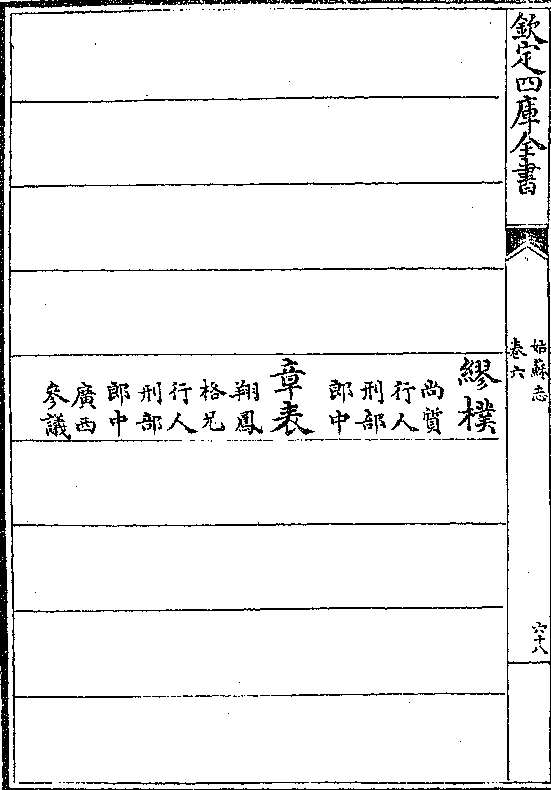 欽定四庫全書
姑蘇志
卷六
六十八
繆樸
尚質
行人
刑部
郎中
章表
翔鳳
格兄
行人
刑部
郎中
廣西
參議